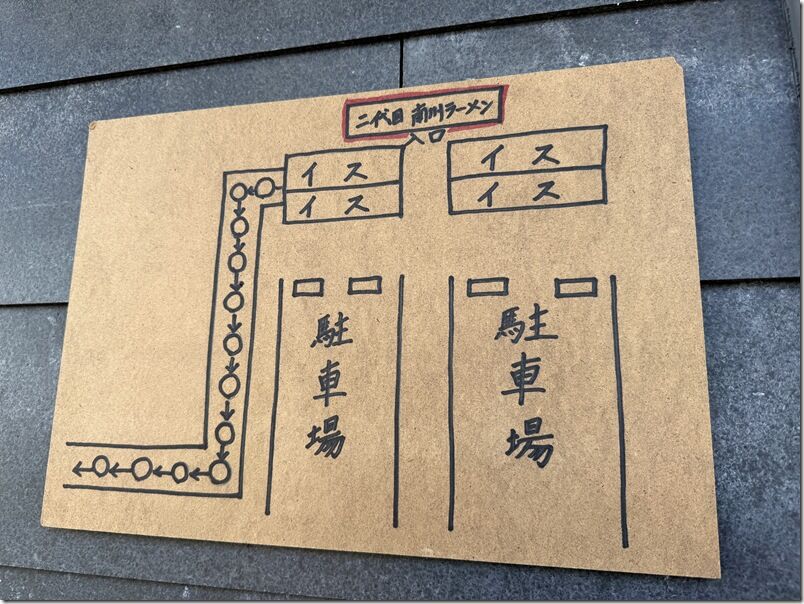 二代目 前川ラーメン
入口
イス イス
イス イス
駐車場 駐車場